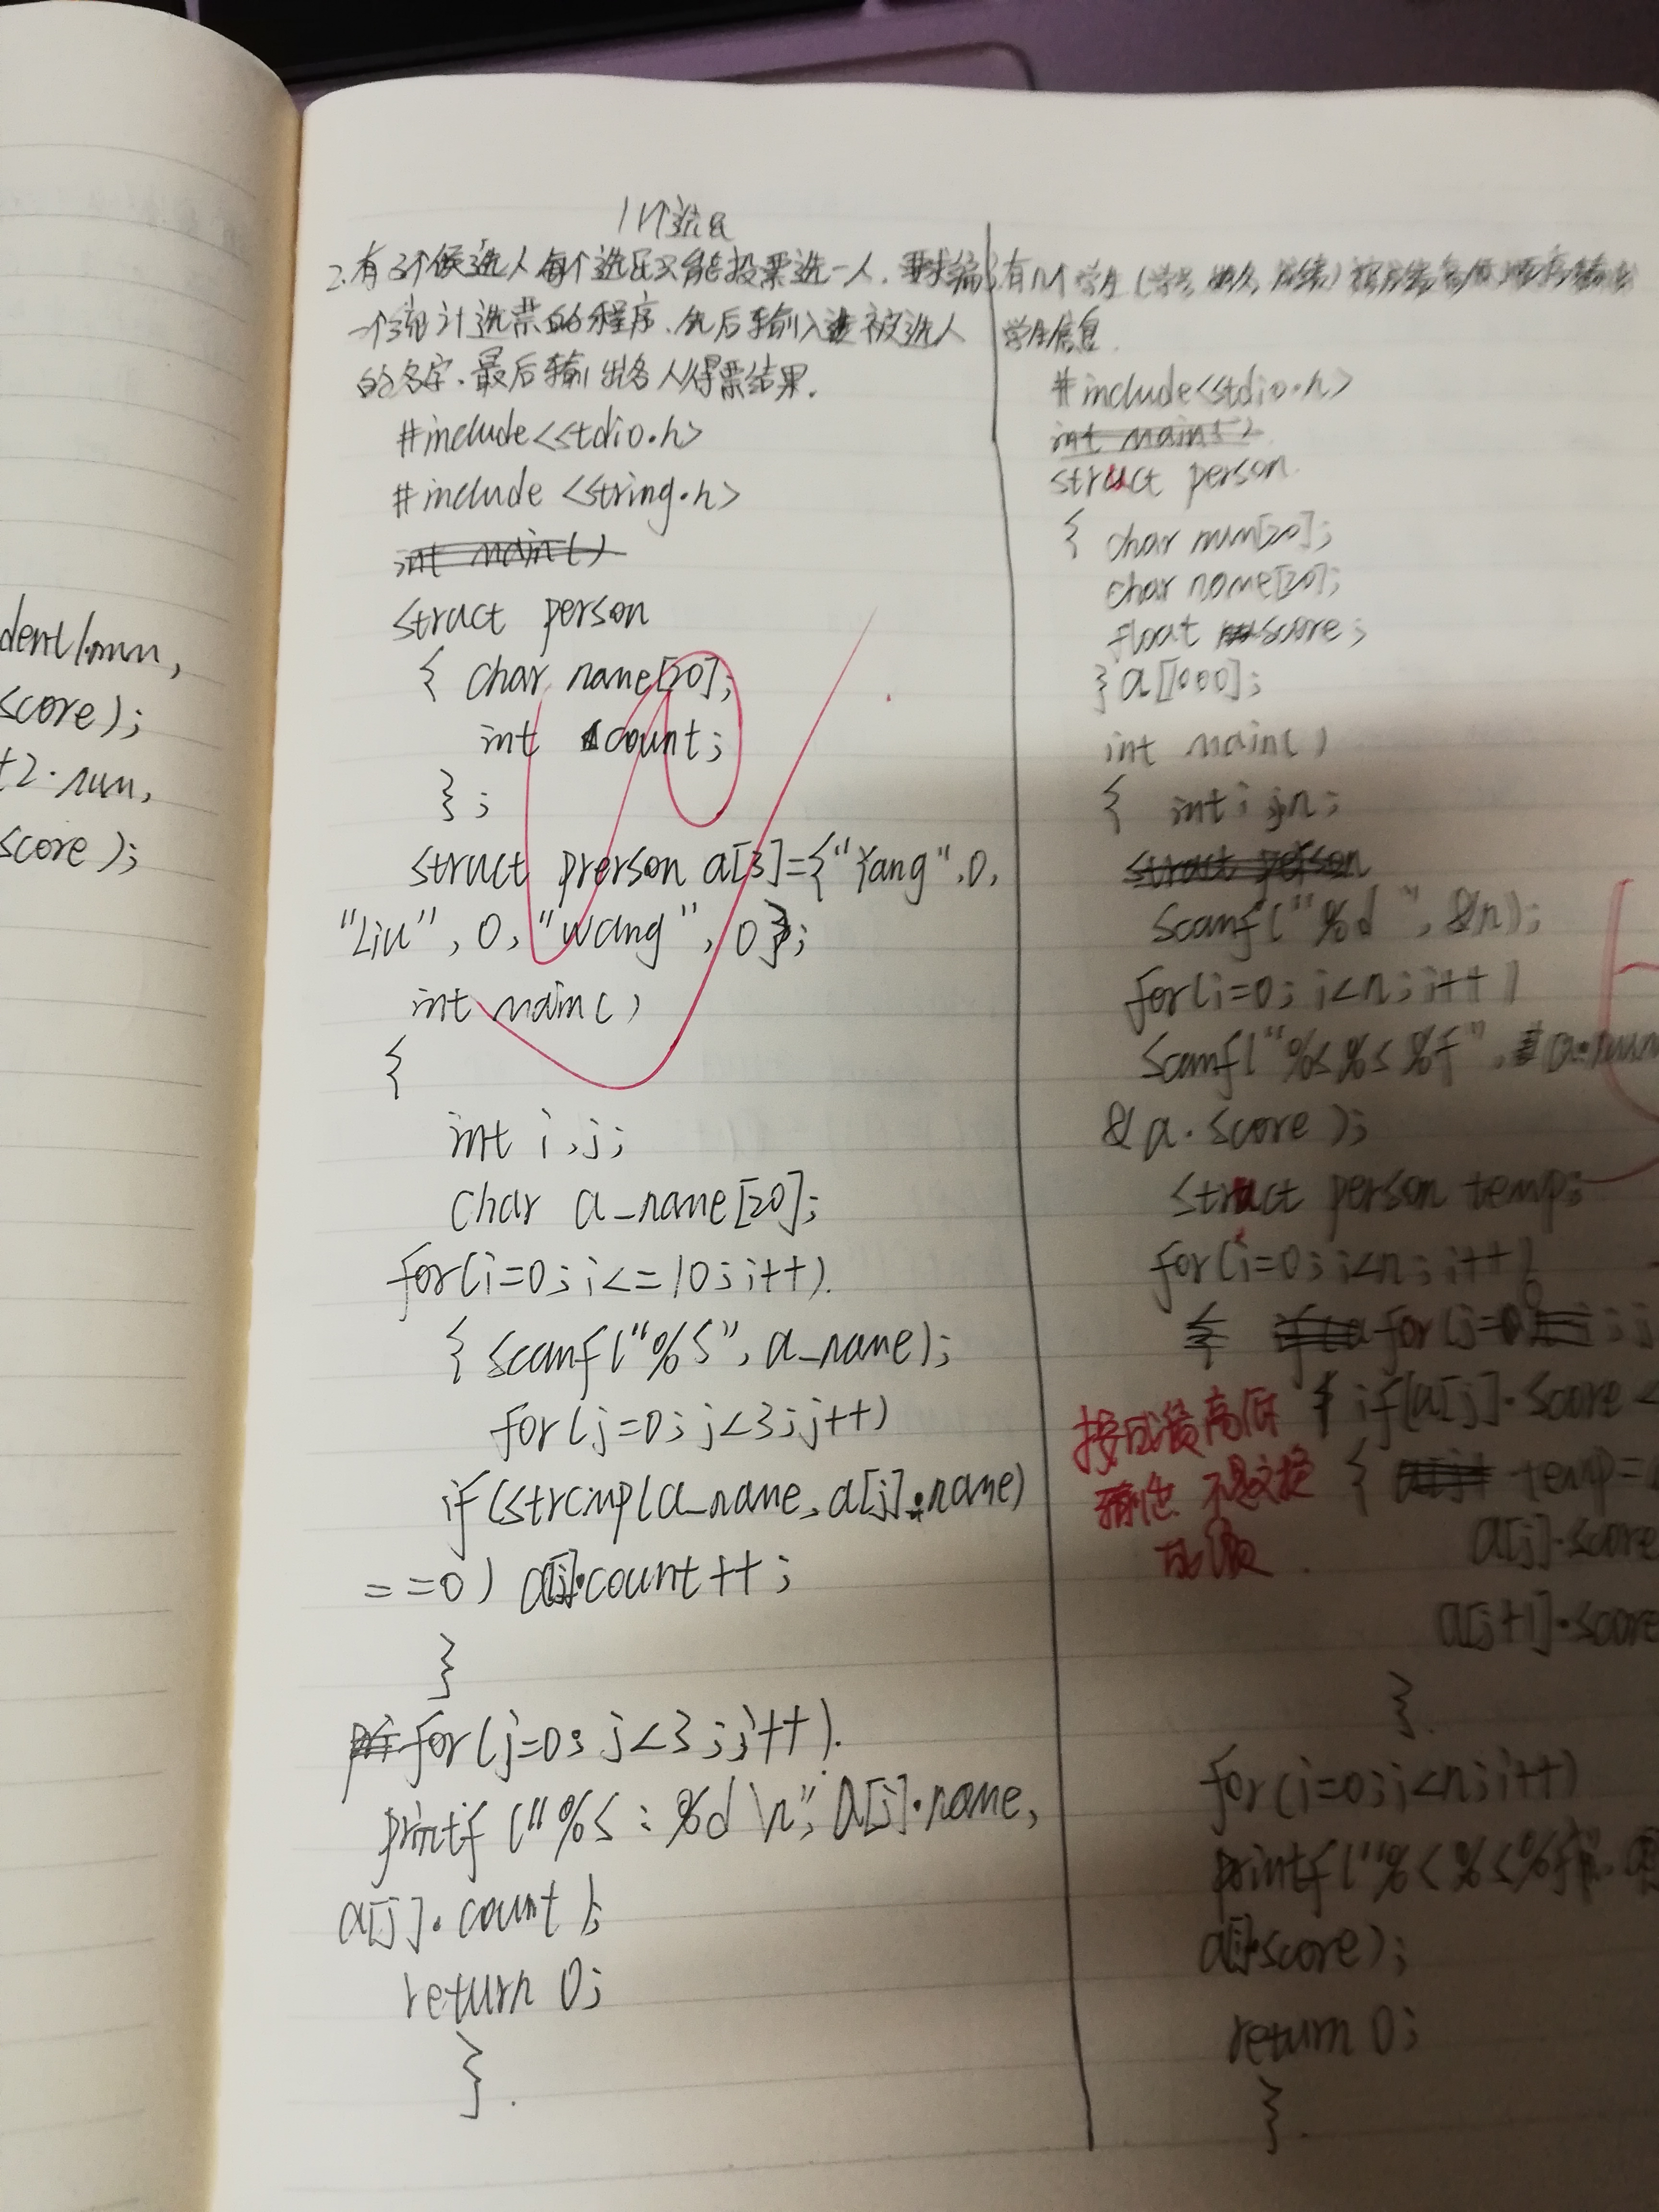 dent1.num,
score);
t2.num,
score);
11个选民
2.有3个候选人每个选民只能投票选一人.要求编
一个统计选票的程序.先后输入被选人
的名字.最后输出各人得票结果.
#include<stdio.h>
#include <string.h>
int main()
struct person
{ char name[20];
int count;
};
struct prerson a[3]={"Yang",0,
"Liu", 0, "wang", 0};
int main()
{
int i,j;
char a_name[20];
for(i=0;i<=10;i++).
{ scanf("%s",a_name);
for(j=0;j<3;j++)
if(strcmp(a_name,a[j].name)
==0) a[j].count++;
}
for(j=0;j<3;j++).
printf("%s:%d\n",a[j].name,
a[j].count);
return 0;
}.
有n个学生(学号,姓名,成绩)按成绩高低顺序输出
学生信息.
#include<stdio.h>
int main()
struct person.
{ char num[20];
char name[20];
float score;
}a[1000];
int main()
{ int i,j,n;
struct person
scanf("%d",&n);
for(i=0;i<n;i++)
scanf("%s%s%f",a.num
&a.score);
struct person temp;
for(i=0;i<n;i++)
for(j=0;j
{ if(a[j].score<
{ temp=
a[j].score
a[j+1].score
}.
按成绩高低
输出 不是交换
成绩.
for(i=0;i<n;i++)
printf("%s%s%f",
a[i].score);
return 0;
}.